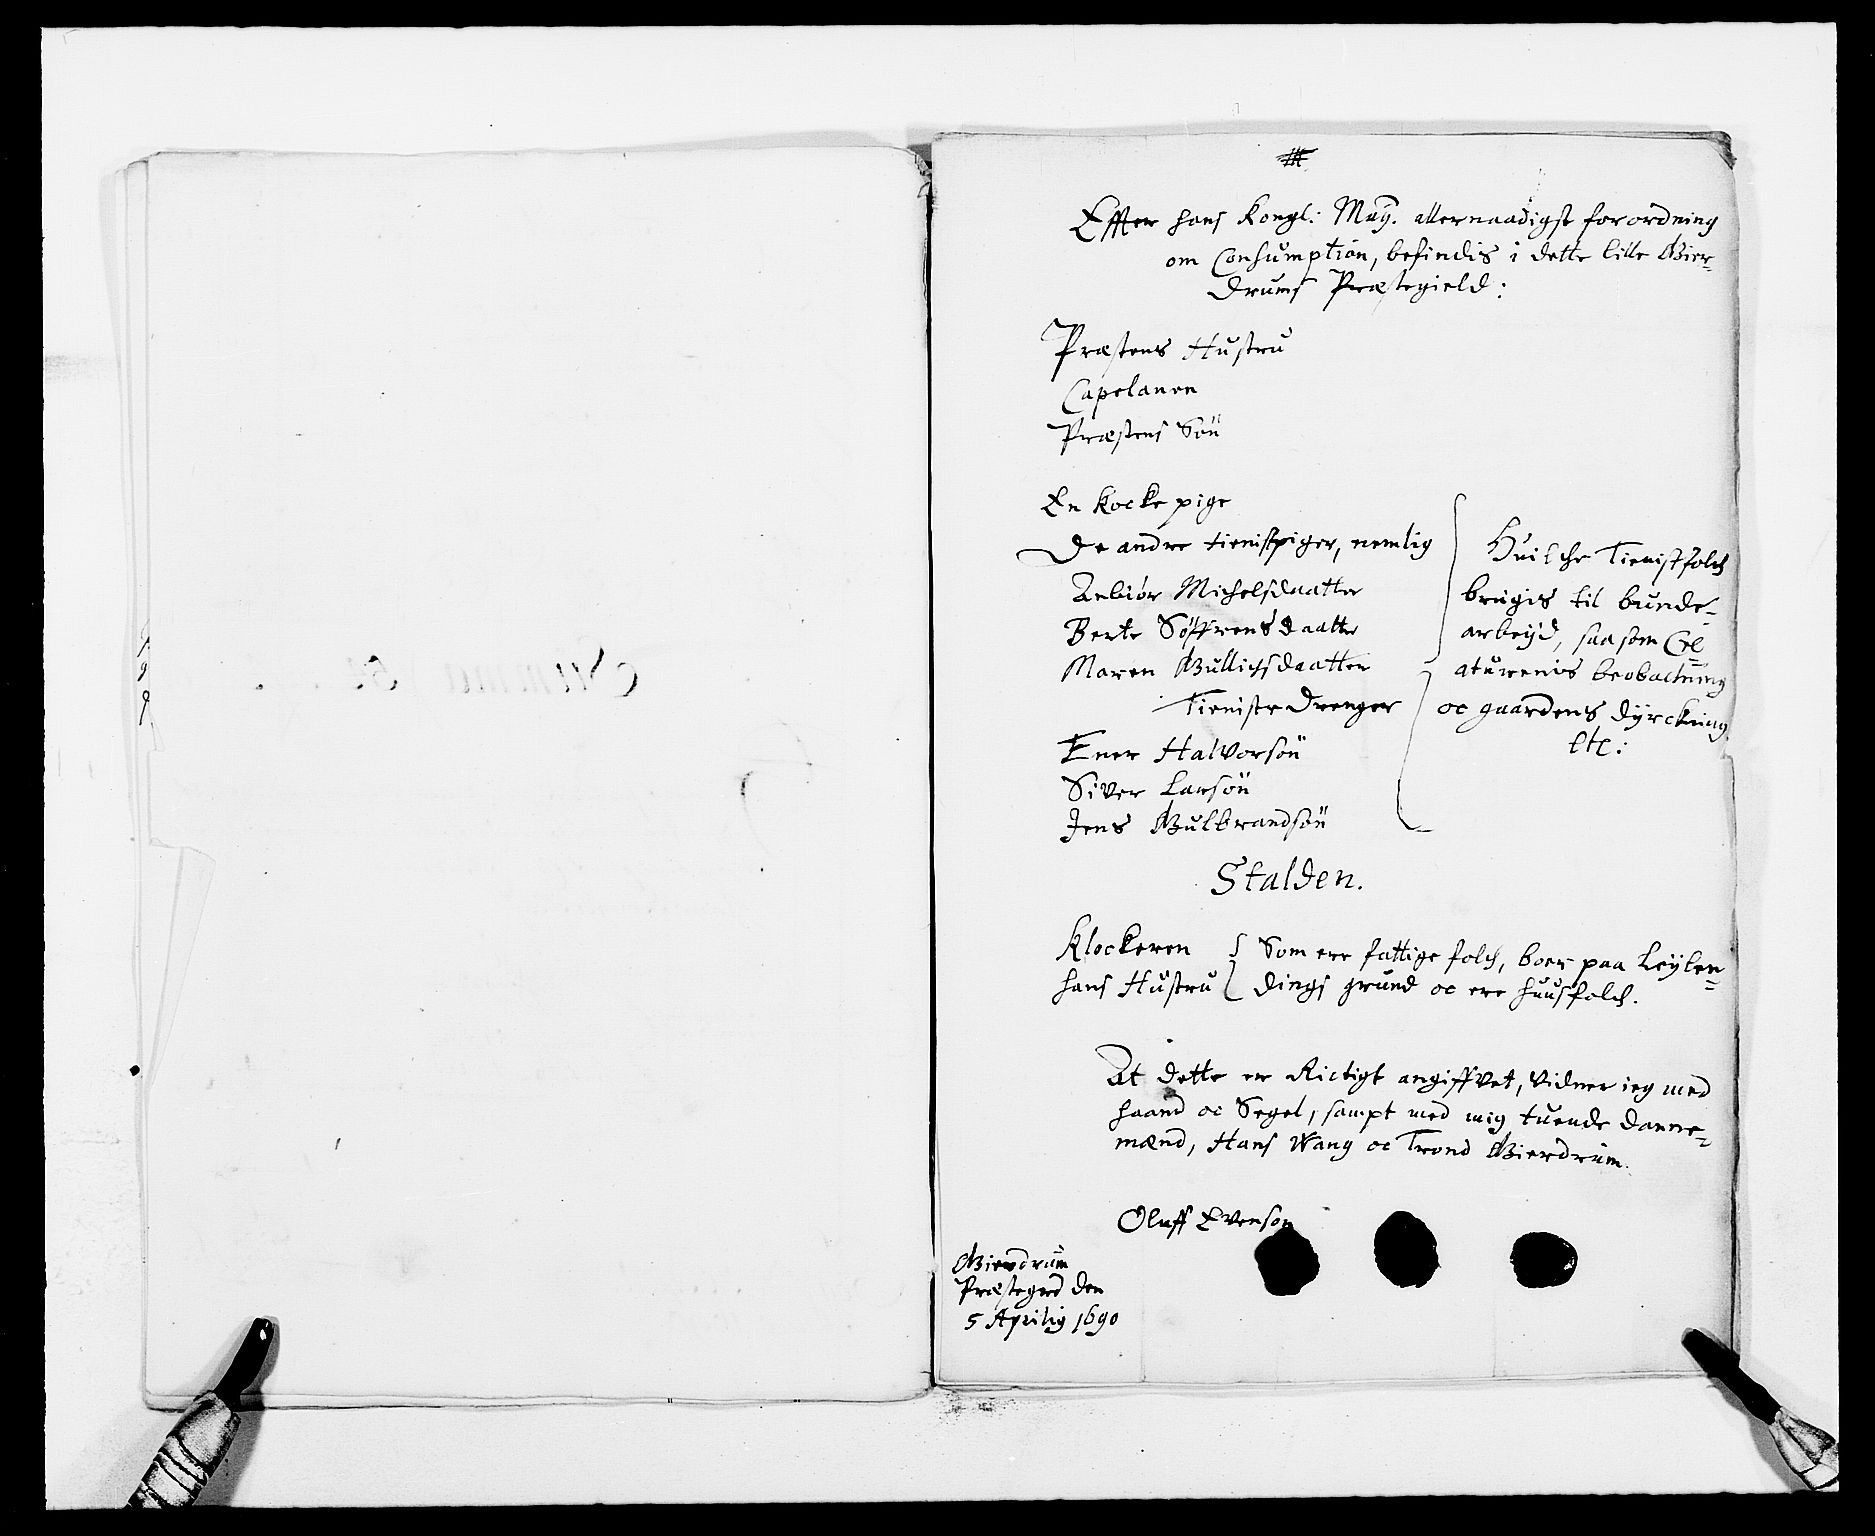 Effter hans Kongl: May. allernaadigst forordning
om Consumption, befindis i dette lille Bier-
drums Præstegield:
Præstens Hustru
Capelanen
Præstens Søn
En Kocke pige
De andre tienistpiger, nemlig
Michelsdaatter
Berte Søffrensdaatter
Maren Gullichsdaatter
Tieniste drenger
Ener Halvorsøn
Siver Larsøn
Jens Gulbrandsøn
Huilche Tienistfolch
brugis til bunde-
arbeyd, saa som Cre=
aturenis beobachtning
oc gaardens dyrckning
etc:
Stalden.
Klockeren
hans Hustru
Som ere fattige folch, boer paa Leylen=
dings grund oc ere huusfolch.
At dette er Rictigt angiffvet, vidner ieg med
haand oc Segel, sampt med mig tuende danne=
mænd, Hans Wang oc Trond Bierdrum.
Oluff Evenson
Bierdrum
Præstegrd den
5 Aprilis 1690
Summa